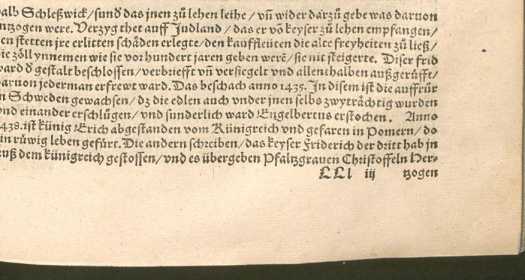 alb Schleßwick/ sund das jnen zů lehen leihe/ vñ wider darzů gebe was daruon
ntzogen were. Verzyg thet auff Judland/ das er vō keyser zů lehen empfangen/
en stetten jre erlitten schåden erlegte/ den kauffleuten die alte freyheiten zů ließ/
ie zöll ynnemen wie sie vor hundert jaren geben werē/ sie nit steigerte. Diser frid
ward ď gestalt beschlossen/ verbriefft vñ versiegelt vnd allenthalben außgerůfft/
daruon jederman erfrewt ward. Das beschach anno 1435. In disem ist die auffrůr
n Schweden gewachsen/ dz die edlen auch vnder jnen selbs zwyträchtig wurden
vnd einander erschlůgen/ vnd sunderlich ward Engelbertus erstochen. Anno
1438. ist künig Erich abgestanden vom Künigreich vnd gefaren in Pomern/ do
in růwig leben gefürt. Die andern schreiben/ das keyser Friderich der dritt hab jn
auß dem künigreich gestossen/ vnd es übergeben Pfaltzgrauen Christoffeln Her-
LLl iij tzogen